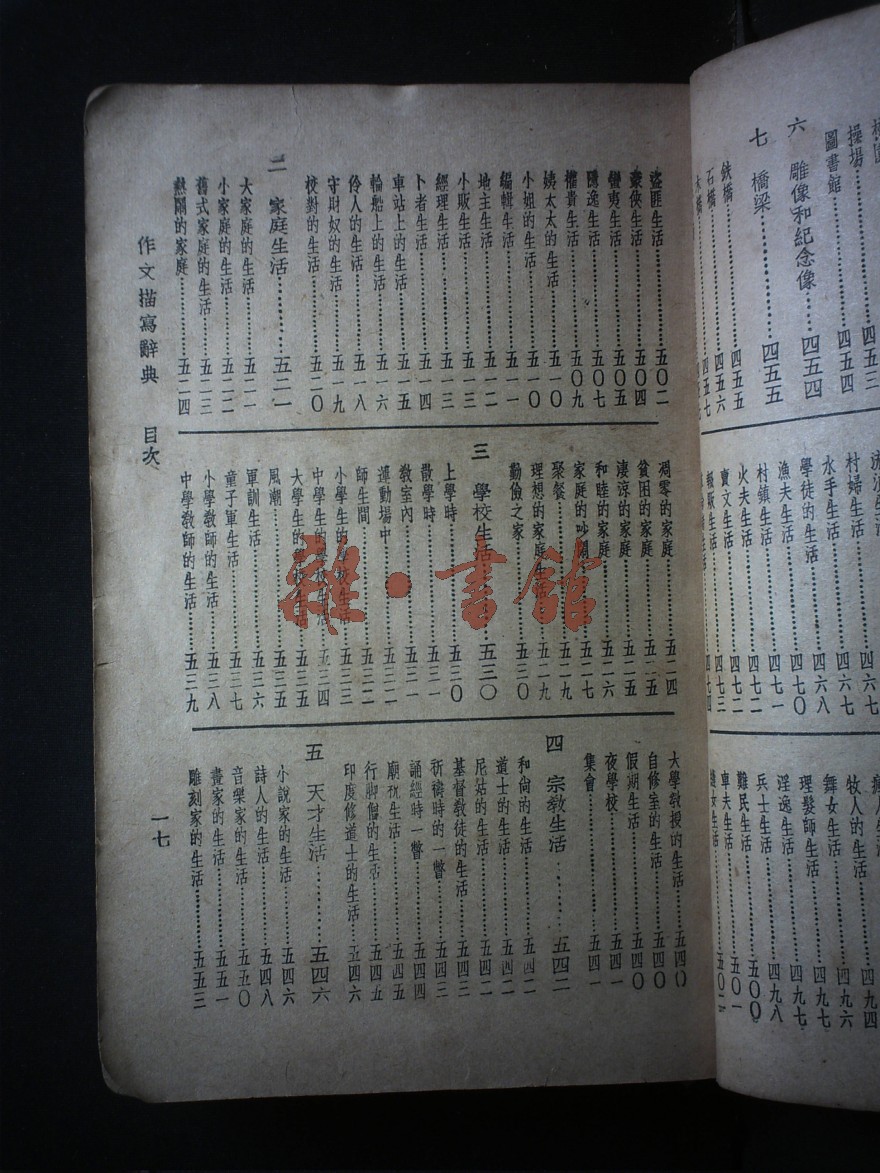 操場……四五三
圖書館……四五四
六 雕像和紀念像……四五四
七 橋梁……四五五
鐵橋……四五五
石橋……四五六
木橋……四五七
村婦生活……四六七
水手生活……四六八
學徒的生活……四七〇
漁夫生活……四七一
村鎮生活……四七二
火夫生活……四七二
賣文生活……四七三
報販生活……四七四
牧人的生活……四九六
舞女生活……四九七
理髮師生活……四九七
淫逸生活……四九八
兵士生活……五〇〇
難民生活……五〇一
車夫生活……五〇二
盜匪生活……五〇二
豪俠生活……五〇四
蠻夷生活……
隱逸生活……五〇七
權貴生活……五〇九
姨太太的生活……五一〇
小姐的生活……五一〇
編輯生活……五一一
地主生活……五一二
小販生活……五一三
經理生活……五一三
卜者生活……五一四
車站上的生活……五一五
輪船上的生活……五一六
伶人的生活……五一八
守財奴的生活……五一九
校對的生活……五二〇
二 家庭生活……五二一
大家庭的生活……五二一
小家庭的生活……五二二
舊式家庭的生活……五二三
熱鬧的家庭……五二四
凋零的家庭……五二四
貧困的家庭……五二五
淒涼的家庭……五二五
和睦的家庭……五二六
家庭的吵鬧……五二七
聚餐……五二九
理想的家庭生活……五二九
勤儉之家……五三〇
三 學校生活……五三〇
上學時……五三〇
散學時……五三一
教室內……五三一
運動場中……五三二
師生間……五三二
小學生的學校生活……五三三
中學生的學校生活……五三四
大學生的學校生活……五三五
風潮……五三五
軍訓生活……五三六
童子軍生活……五三七
小學教師的生活……五三八
中學教師的生活……五三九
大學教授的生活……五四〇
自修室的生活……五四〇
假期生活……五四〇
夜學校……五四一
集會……五四一
四 宗教生活……五四二
和尙的生活……五四二
道士的生活……五四二
尼姑的生活……五四二
基督教徒的生活……五四三
祈禱時的一瞥……五四三
誦經時一瞥……五四四
廟祝生活……五四五
行腳僧的生活……五四五
印度修道士的生活……五四六
五 天才生活……五四六
小說家的生活……五四六
詩人的生活……五四八
音樂家的生活……五五〇
畫家的生活……五五一
雕刻家的生活……五五三
作文描寫辭典 目次
一七
雜·書館